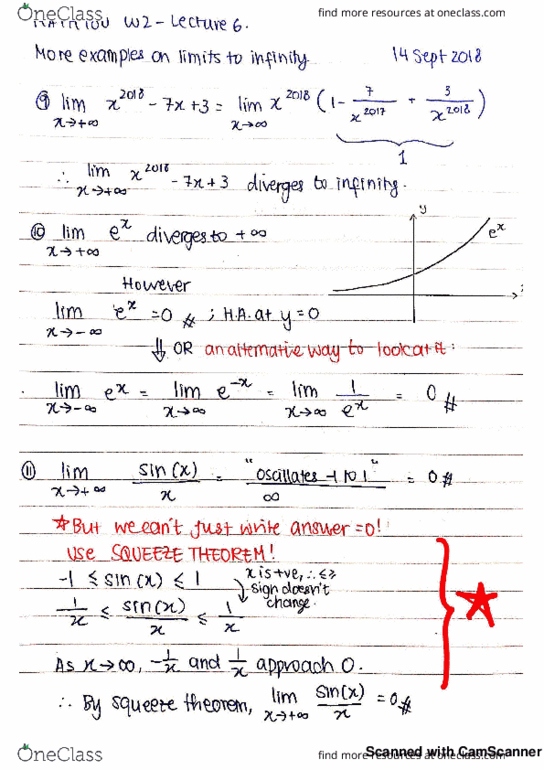 OneClass
find more resources at oneclass.com
MATH 100 W2 - Lecture 6.
More examples on limits to infinity
14 Sept 2018
⑨ lim x→+∞ x^2018 - 7x + 3 = lim x→∞ x^2018 (1 - 7/x^2017 + 3/x^2018)
1
∴ lim x→+∞ x^2018 - 7x + 3 diverges to infinity.
⑩ lim x→+∞ e^x diverges to +∞
y
e^x
However
lim x→-∞ e^x = 0 # ; H.A. at y = 0
⇓ OR an alternative way to look at it:
lim x→-∞ e^x = lim x→∞ e^-x = lim x→∞ 1/e^x = 0 #
⑪ lim x→+∞ sin(x)/x = "oscillates -1 to 1"/∞ = 0 #
*But we can't just write answer = 0!
USE SQUEEZE THEOREM!
-1 ≤ sin(x) ≤ 1
x is +ve, ∴ ≤≥
sign doesn't
change.
1/x ≤ sin(x)/x ≤ 1/x
As x→∞, -1/x and 1/x approach 0.
∴ By squeeze theorem, lim x→+∞ sin(x)/x = 0 #
OneClass
find more resources at oneclass.com
Scanned with CamScanner